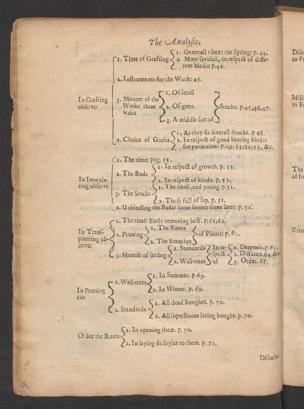 The Analysis.
1. Generall time: the Spring: p. 44.
1. Time of Grafting
2. More speciall, in respect of diffe-
rent kinds: p. 44.
2. Instruments for the Work: 45.
In Grafting
observe
1. Of small
3. Manner of the
Worke three
waies
2. Of great
Stocks. p. 45,46,47.
3. A middle sort of
1. As they fit severall Stocks. p. 48.
4. Choice of Grafts
2. In respect of good bearing kinds:
see particulars:
1. The time: pag. 51.
1. In respect of growth. p. 51.
2. The Buds
2. In respect of kinds. p. 51.
In Inocula-
ting observe
1. The small, and young. p. 51.
3. The Stocks
2. The full of sap. p. 51.
4. Unbinding the Buds: some sooner some later. p. 52.
1. The time: Early removing best. p. 61,62.
1. The Roots
2. Pruning
of Plants: p. 62.
2. The Branches
In Trans-
planting ob-
serve
1. Standards
In re-
spect
of
1. Deepnesse. p. 63.
3. Manner of setting
2. Distance.
2. Wall-trees
3. Order. 67.
1. In Summer. p. 69.
1. Wall-trees
2. In Winter. p. 69.
In Pruning
cut
1. All dead Boughes. p. 70.
2. Standards
2. All superfluous living boughes. p. 70.
Order the Roots
1. In opening them. p. 70.
2. In laying fit soyles to them. p. 71.
Diseases